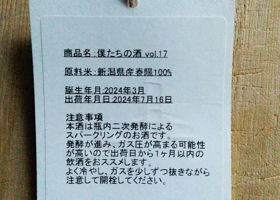 商品名:僕たちの酒 vol.17
原料米:新潟県産春陽100%
誕生年月:2024年3月
出荷年月日:2024年7月16日
注意事項
本酒は瓶内二次発酵による
スパークリングのお酒です。
発酵が進み、ガス圧が高まる可能性
が高いので出荷日から1ヶ月以内の
飲酒をおススメします。
よく冷やし、ガスを少しずつ抜きながら
注意して開栓してください。